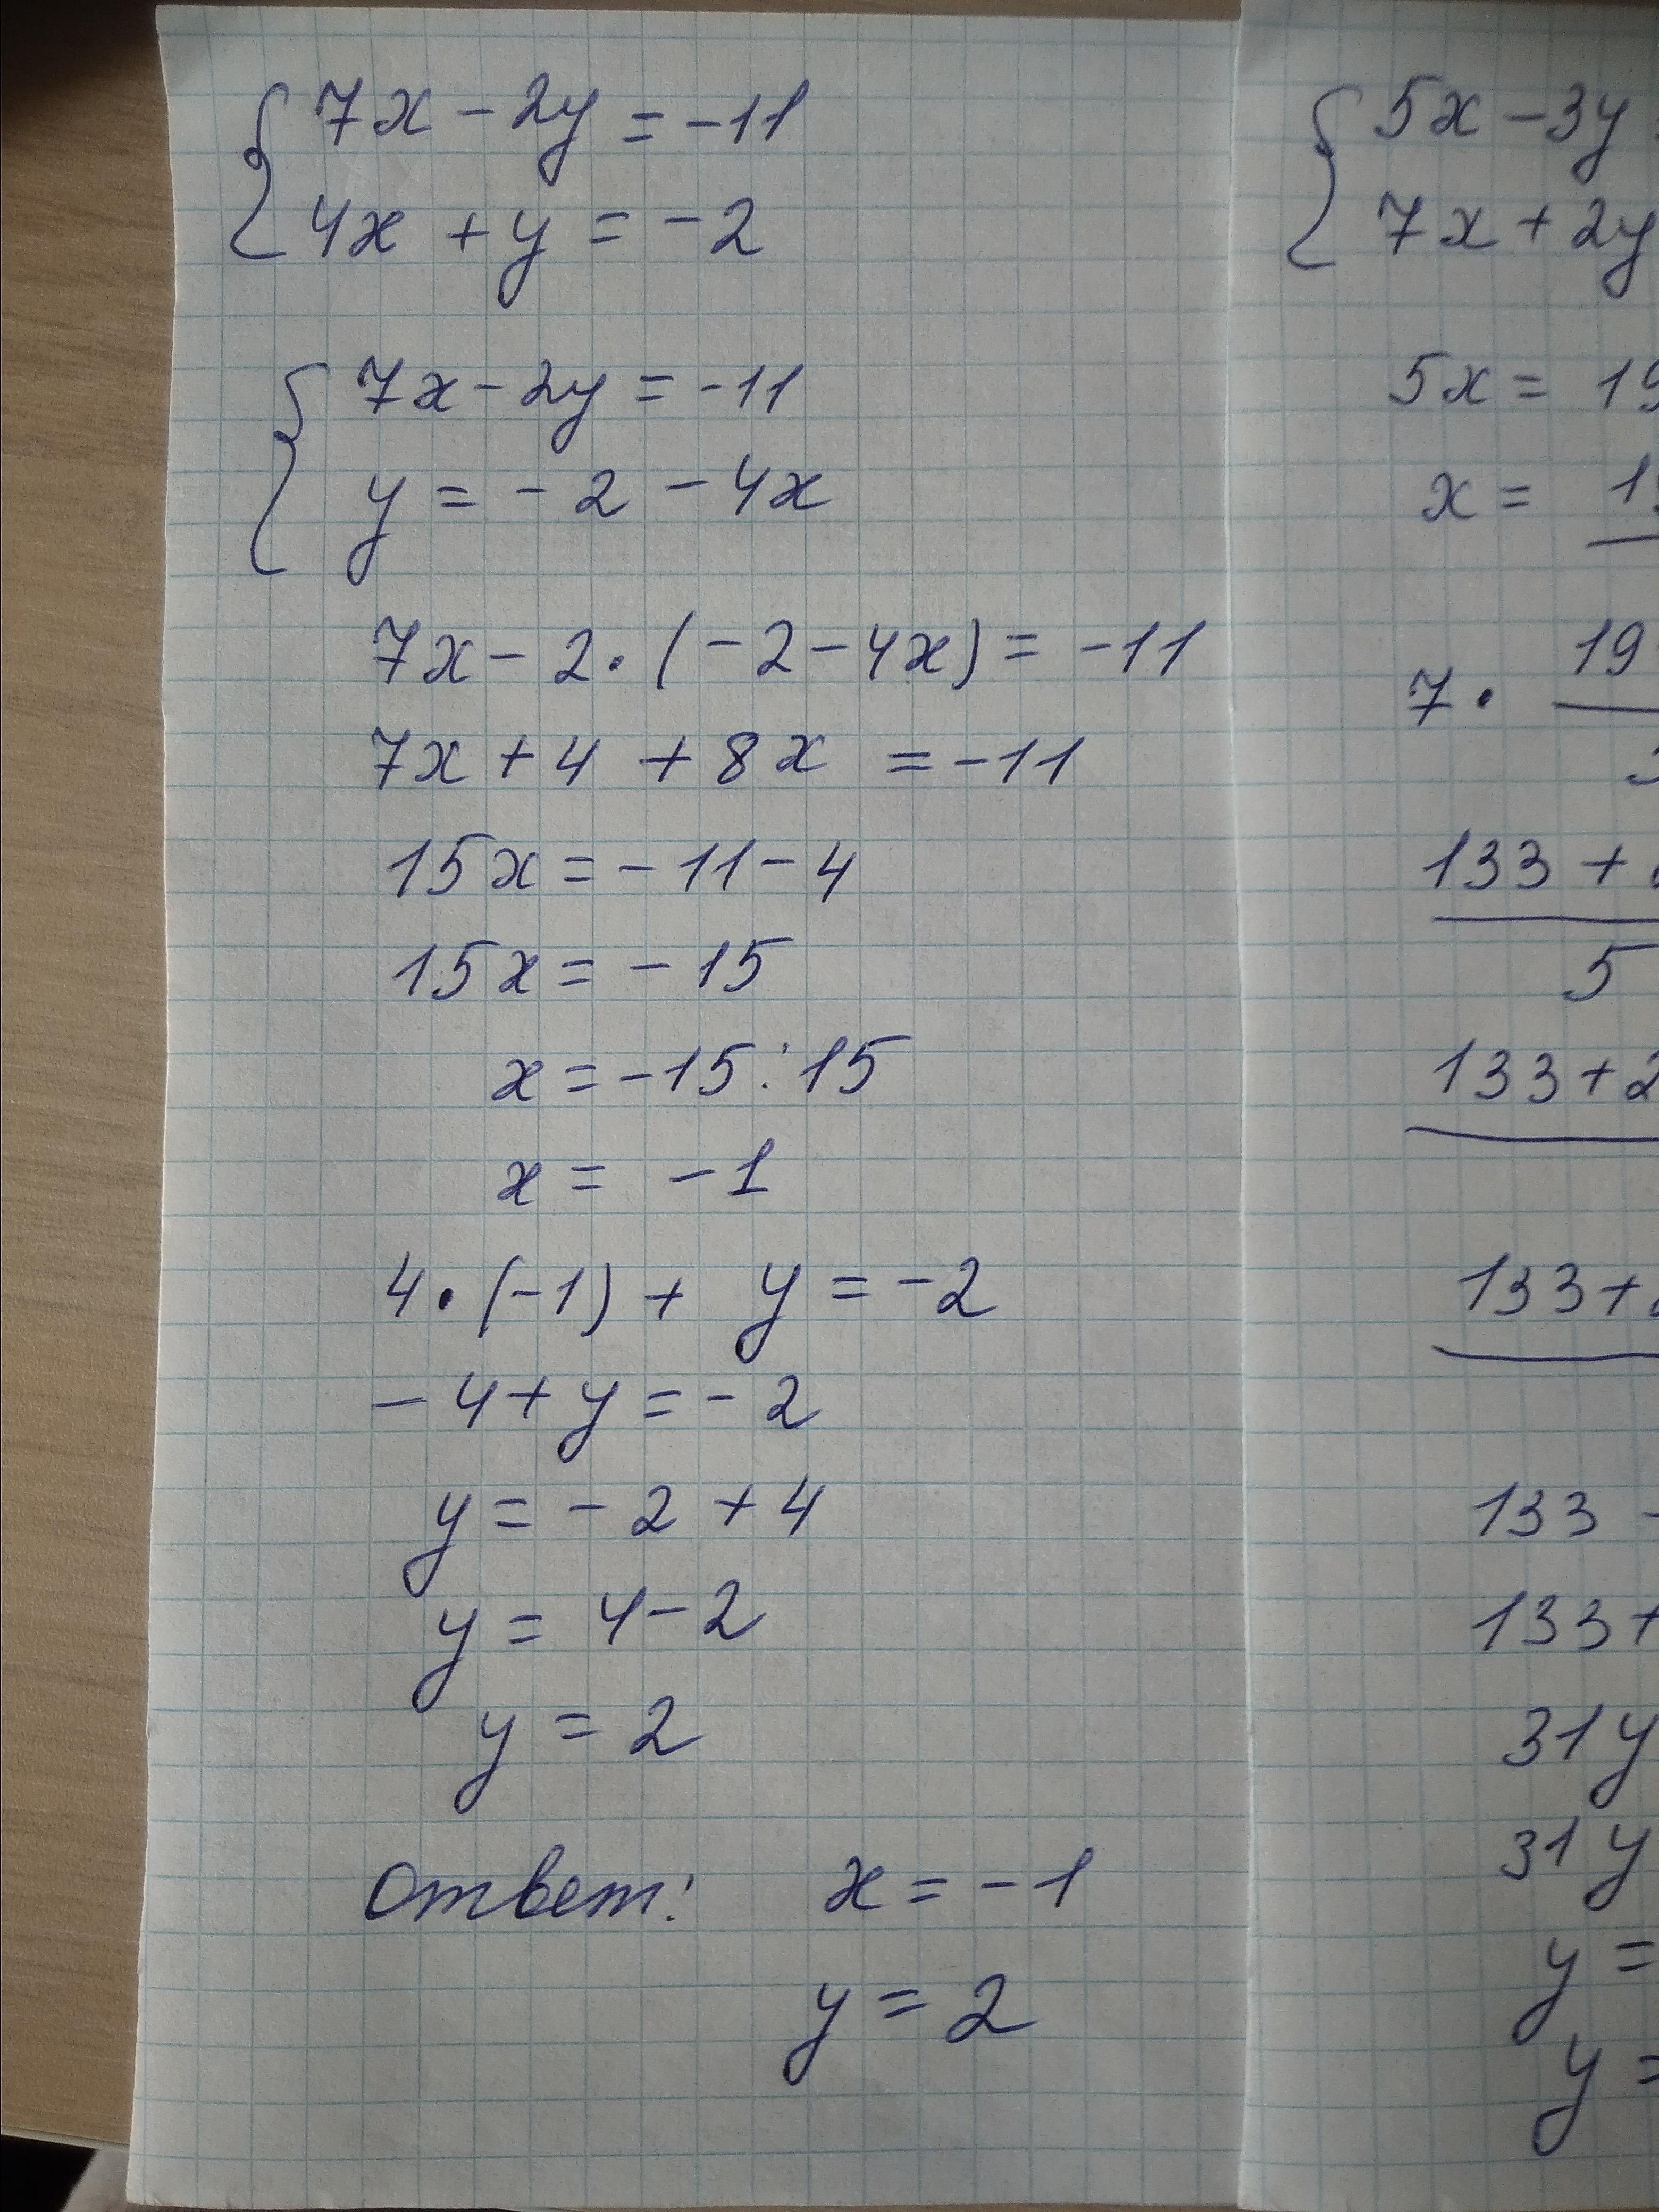 7x - 2y = -11
4x + y = -2
7x - 2y = -11
y = -2 - 4x
7x - 2 · (-2 - 4x) = -11
7x + 4 + 8x = -11
15x = -11 - 4
15x = -15
x = -15 : 15
x = -1
4 · (-1) + y = -2
-4 + y = -2
y = -2 + 4
y = 4 - 2
y = 2
Ответ: x = -1
y = 2
5x - 3y
7x + 2y
5x = 19
x = 19
19
7 ·
133 +
5
133 + 2
133 +
133 -
133 +
31y
31y
y =
y =